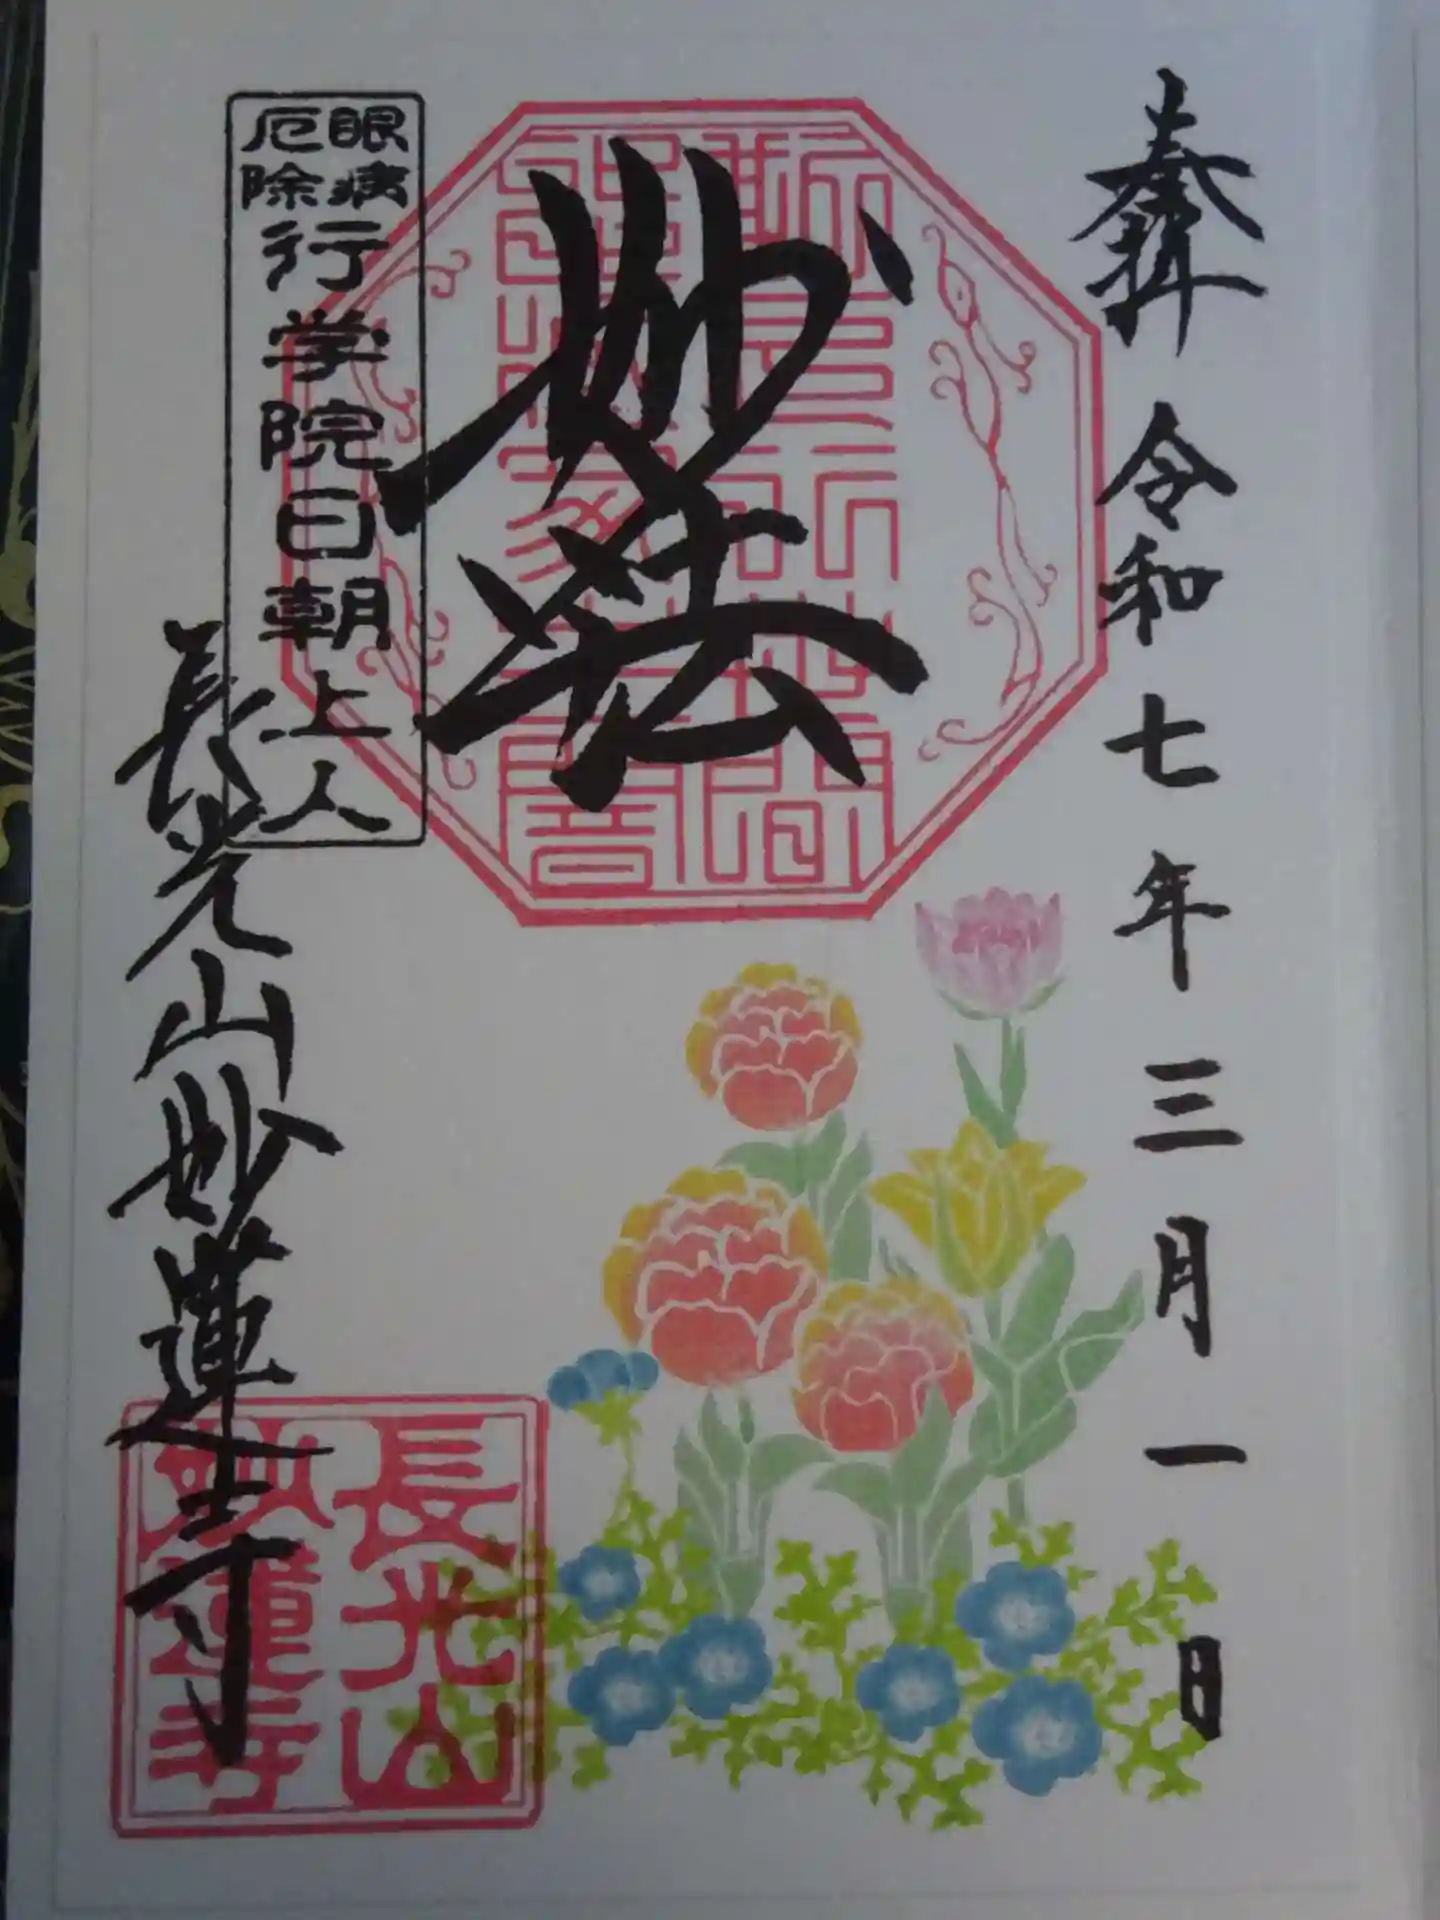 奉拝 令和七年三月一日
妙法
眼病
厄除
行学院日朝上人
長光山妙蓮寺
長光山
妙蓮寺